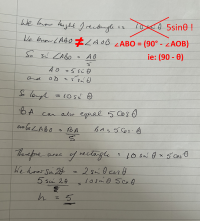 We know height of rectangle is 10 sin θ 5sinθ !
We know ∠ABO ≠ ∠AOB
∠ABO = (90° - ∠AOB)
ie: (90 - θ)
So sin ∠ABO = AB/5
AB = 5 sin θ
and OD = 5 sin θ
So length = 10 sin θ
BA can also equal 5 cos θ
∠ABO = BA/5 BA = 5 cos θ
Therefore area of rectangle = 10 sin θ × 5 cos θ
We know sin 2θ = 2 sin θ cos θ
5 sin 2θ = 10 sin θ 5 cos θ
k = 5